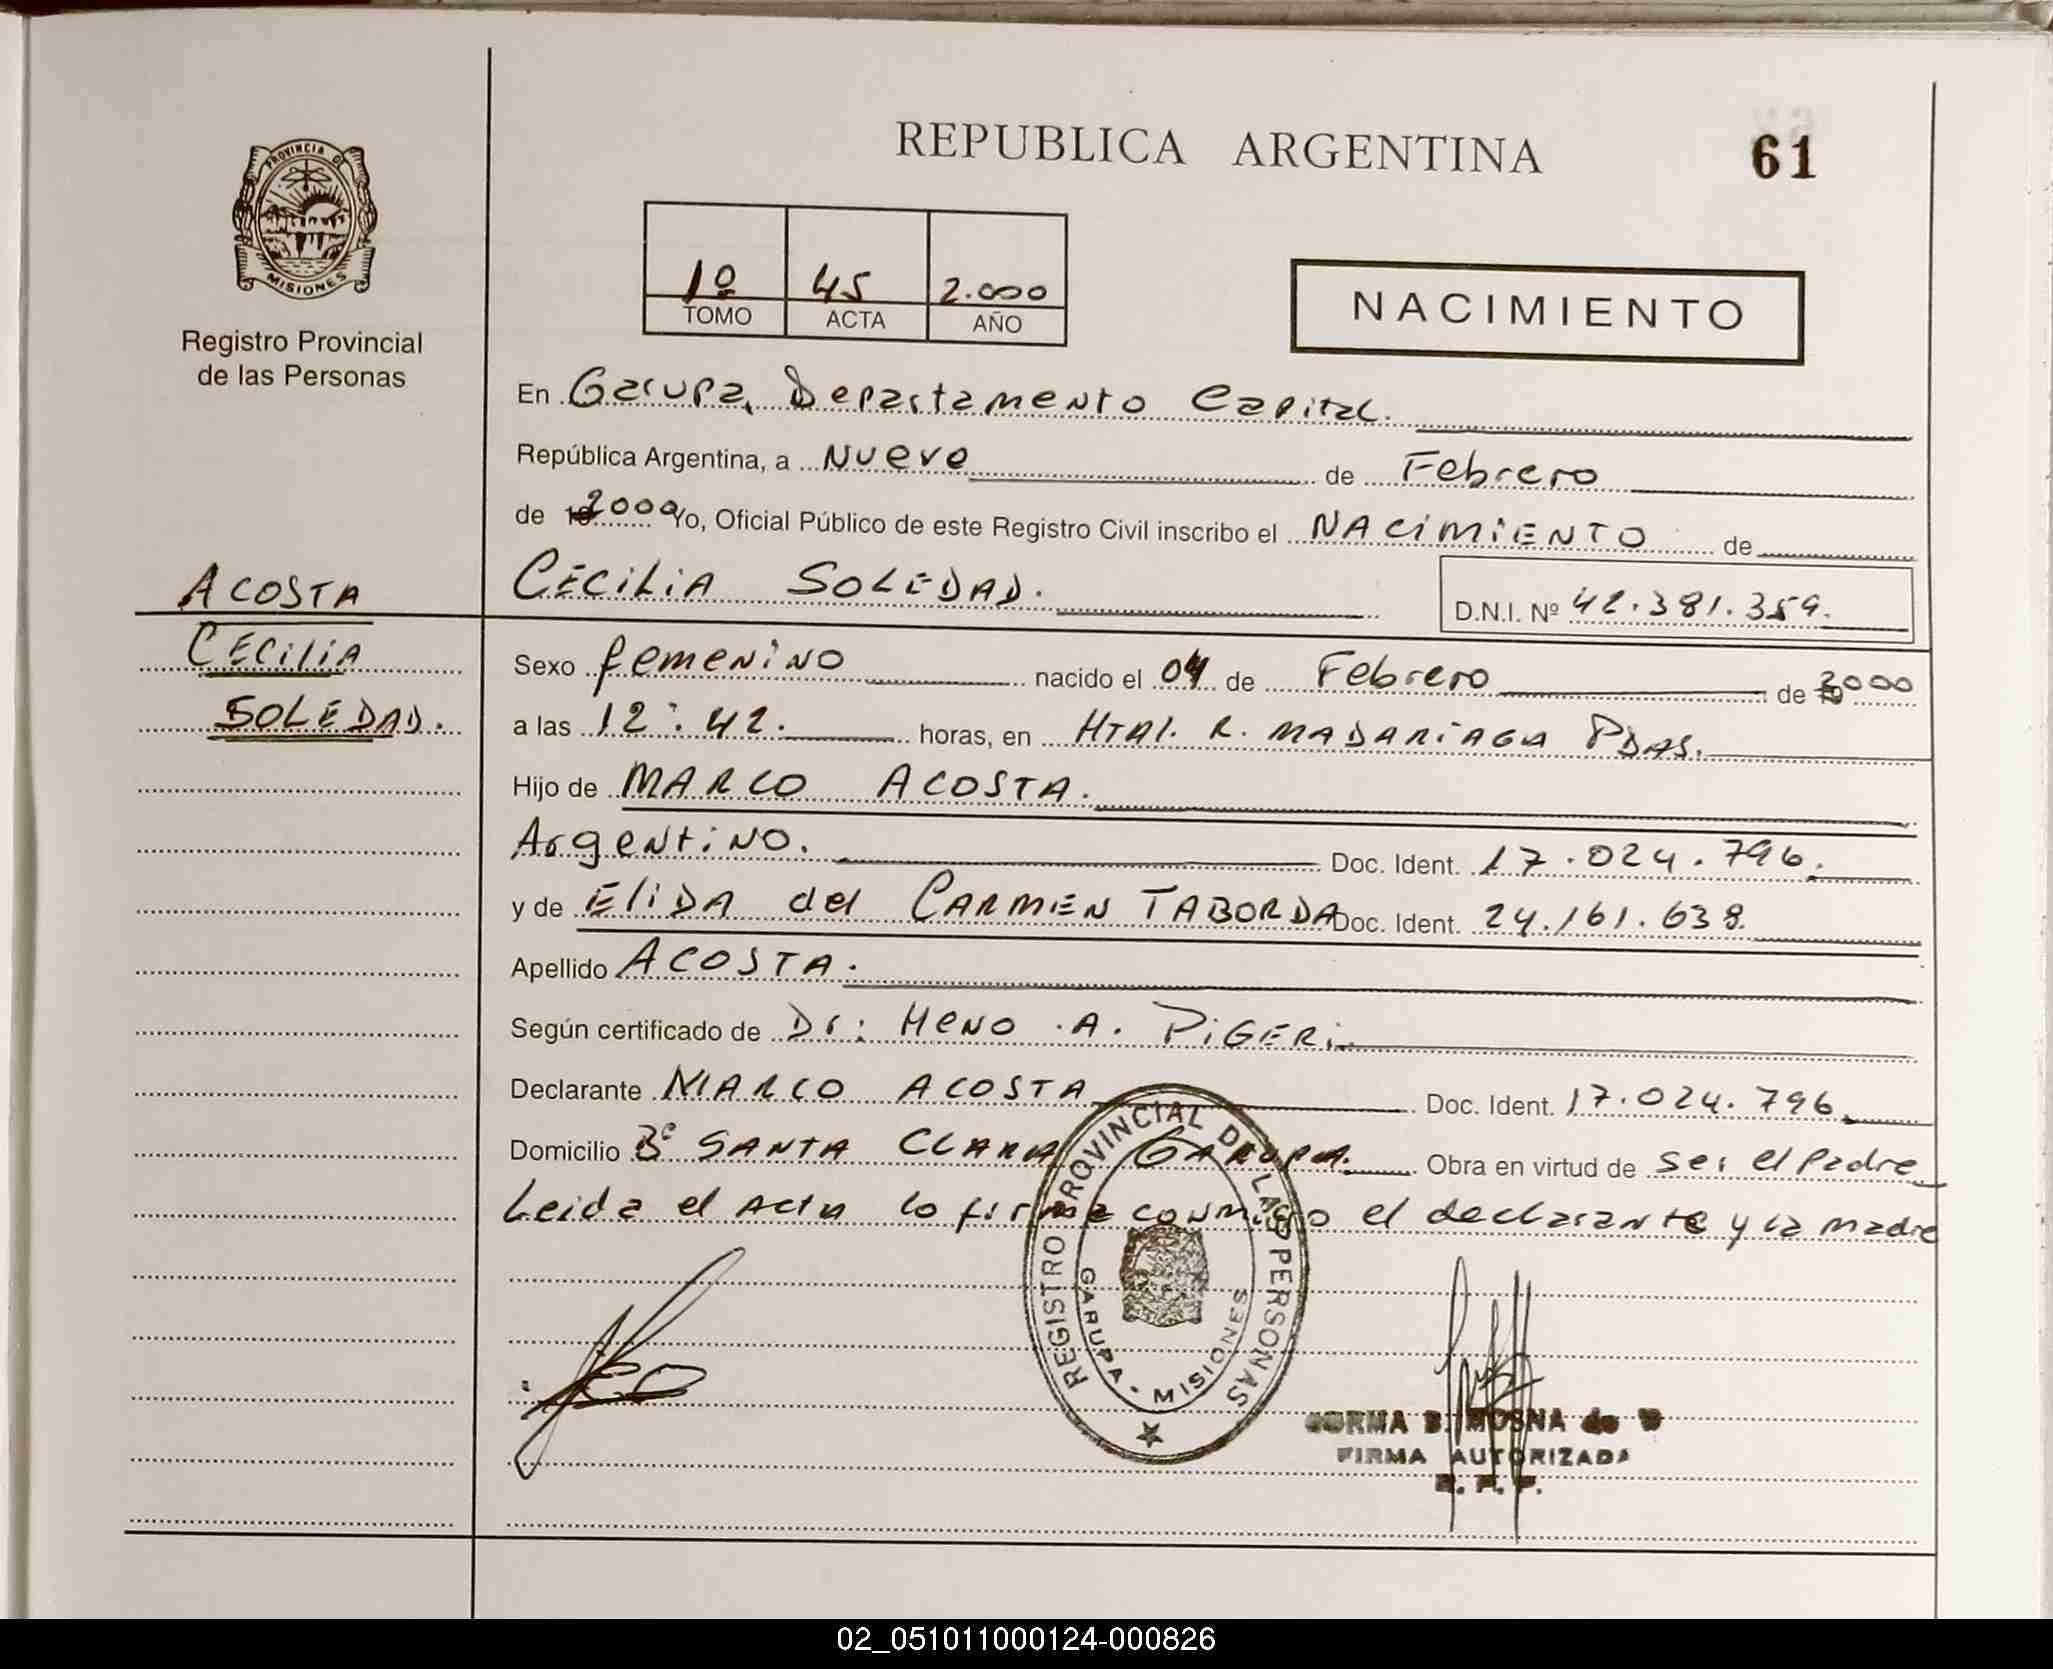 REPUBLICA ARGENTINA
61
PROVINCIA DE
MISIONES
Registro Provincial
de las Personas
1º 45 2.000
TOMO ACTA AÑO
NACIMIENTO
En Garupa, Departamento Capital.
República Argentina, a Nueve de Febrero
de 2000 Yo, Oficial Público de este Registro Civil inscribo el NACIMIENTO de
CECILIA SOLEDAD.
D.N.I. Nº 42.381.359.
ACOSTA
CECILIA
SOLEDAD.
Sexo femenino nacido el 04 de Febrero de 2000
a las 12:42. horas, en Htal. R. MADARIAGA PDAS.
Hijo de MARCO ACOSTA.
Argentino. Doc. Ident. 17.024.796.
y de ELIDA del CARMEN TABORDA Doc. Ident. 24.161.638.
Apellido ACOSTA.
Según certificado de Dr: HENO A. PIGERi.
Declarante MARCO ACOSTA Doc. Ident. 17.024.796.
Domicilio Bº SANTA CLARA GARUPA. Obra en virtud de ser el Padre
Leida el Acta lo firma conmigo el declarante y la madre
REGISTRO PROVINCIAL DE LAS PERSONAS
GARUPA - MISIONES
B. MOSNA de
FIRMA AUTORIZADA
02_051011000124-000826